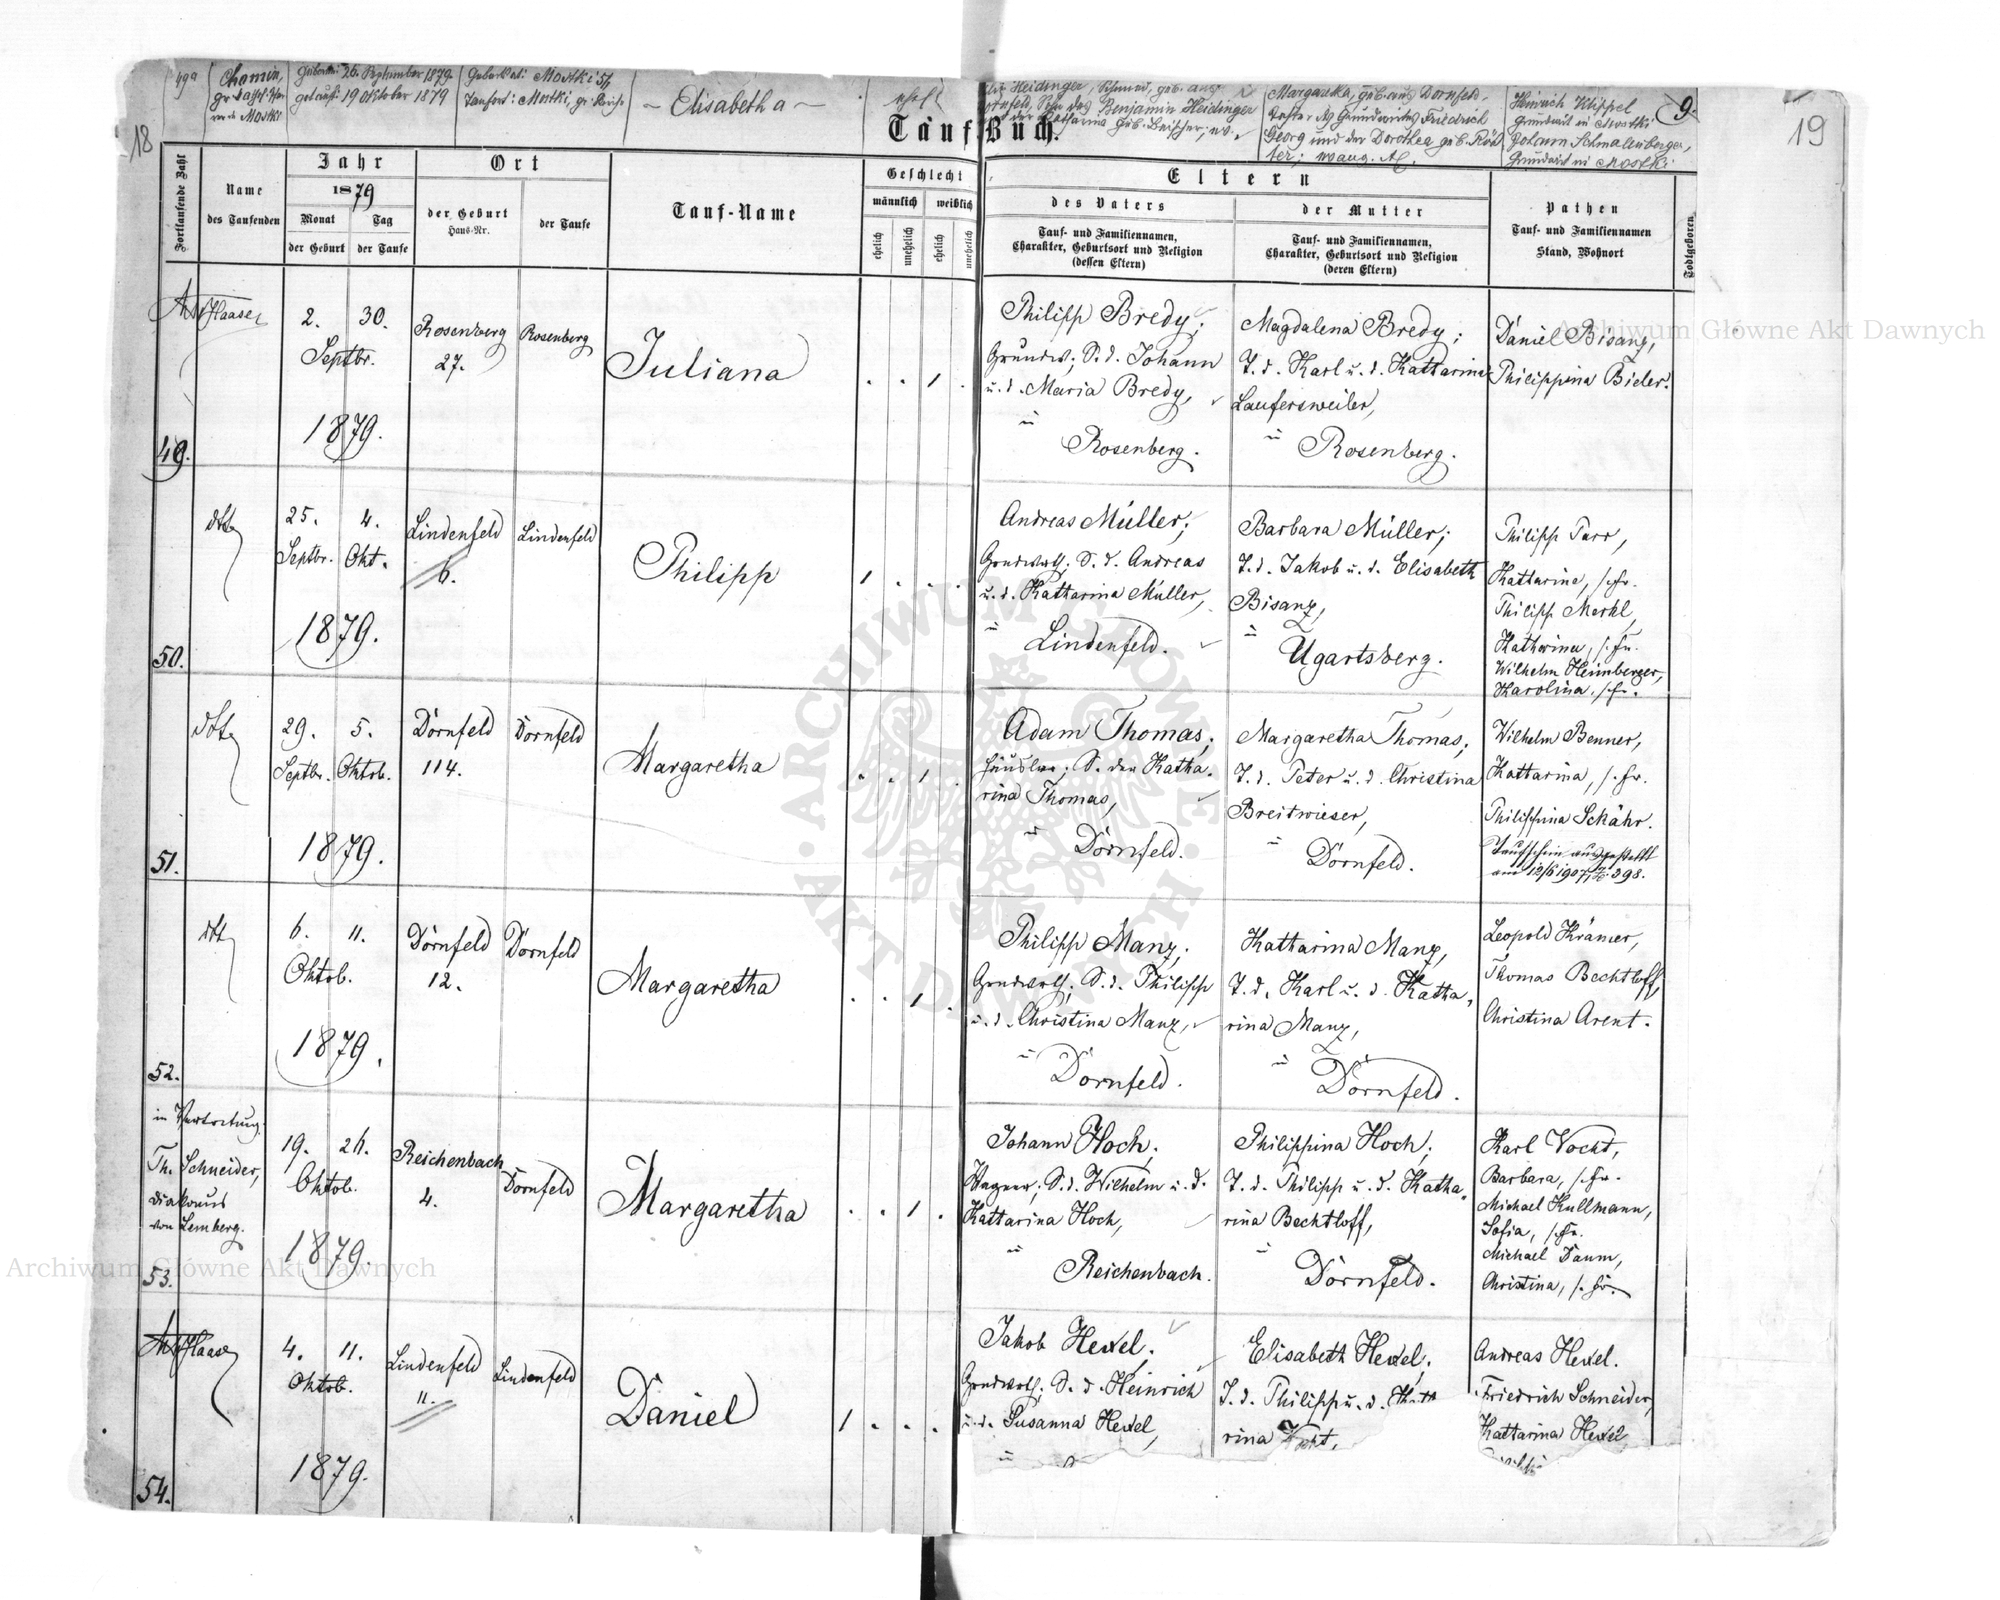 49a
Chamin,
geboren: 26. September 1879.
getauft: 19 Oktober 1879
Geburtsort: Mostki 51,
Taufort: Mostki, gr. Kirche
Mostki
~ Elisabetha ~
ehel.
Heidinger, Schmied, geb. aus
Dornfeld, Sohn des Benjamin Heidinger
und der Katharina geb. Beischer; ev.
Margaretha, geb. aus Dornfeld,
Tochter des Grundwirtes Friedrich
Georg und der Dorothea geb. Röß
ler; evang. AC.
Heinrich Klippel
Grundwirt in Mostki
Johann Schmalenberger,
Grundwirt in Mostki
9.
18
19
Tauf Buch.
Fortlaufende Zahl
Name
des Taufenden
Jahr
1879
Monat
der Geburt
Tag
der Taufe
Ort
der Geburt
Haus-Nr.
der Taufe
Tauf-Name
Geschlecht
männlich
weiblich
ehelich
unehelich
ehelich
unehelich
Eltern
des Vaters
Tauf- und Familiennamen,
Charakter, Geburtsort und Religion
(dessen Eltern)
der Mutter
Tauf- und Familiennamen,
Charakter, Geburtsort und Religion
(deren Eltern)
Pathen
Tauf- und Familiennamen
Stand, Wohnort
Todtgeboren
49.
Haase
2. 30.
Septbr.
1879.
Rosenberg
27.
Rosenberg
Juliana
1
Philipp Bredy;
Grundw; S. d. Johann
u. d. Maria Bredy,
Rosenberg.
Magdalena Bredy;
T. d. Karl u. d. Kattarina
Laufersweiler,
Rosenberg.
Daniel Bisanz,
Philippina Bieler.
50.
dtto
25. 4.
Septbr. Okt.
1879.
Lindenfeld
6.
Lindenfeld
Philipp
1
Andreas Müller;
Grundwrth; S. d. Andreas
u. d. Katharina Müller,
Lindenfeld.
Barbara Müller;
T. d. Jakob u. d. Elisabeth
Bisanz,
Ugartsberg.
Philipp Parr,
Kattarina, s. Fr.
Philipp Merkl,
Katharina, s. Fr.
Wilhelm Heimberger,
Karolina, s. Fr.
51.
dtto
29. 5.
Septbr. Oktob.
1879.
Dörnfeld
114.
Dornfeld
Margaretha
1
Adam Thomas;
Häusler; S. der Katha-
rina Thomas,
Dörnfeld.
Margaretha Thomas;
T. d. Peter u. d. Christina
Breitwieser,
Dörnfeld.
Wilhelm Benner,
Kattarina, s. Fr.
Philippina Schähr.
Taufschein ausgestellt
am 12/6 1907, 398.
52.
dtto
6. 11.
Oktob.
1879.
Dörnfeld
12.
Dörnfeld
Margaretha
1
Philipp Manz;
Grundwrth; S. d. Philipp
u. d. Christina Manz,
Dornfeld.
Kattarina Manz,
T. d. Karl u. d. Katha-
rina Manz,
Dornfeld.
Leopold Krämer,
Thomas Bechtloff,
Christina Arent.
53.
in Vertretung
Th. Schneider,
Diakonus
von Lemberg.
19. 26.
Oktob.
1879.
Reichenbach
4.
Dornfeld
Margaretha
1
Johann Hoch;
Wagner; S. d. Wilhelm u. d.
Kattarina Hoch,
Reichenbach.
Philippina Hoch;
T. d. Philipp u. d. Katha-
rina Bechtloff,
Dörnfeld.
Karl Vocht,
Barbara, s. Fr.
Michael Kullmann,
Sofia, s. Fr.
Michael Daum,
Christina, s. Fr.
54.
Haase
4. 11.
Oktob.
1879.
Lindenfeld
11.
Lindenfeld
Daniel
1
Jakob Hexel;
Grundwrth; S. d. Heinrich
u. d. Susanna Hexel,
Elisabeth Hexel;
T. d. Philipp u. d. Katt
rina
Andreas Hexel.
Friedrich Schneider,
Kattarina Hexel
Archiwum Główne Akt Dawnych
Archiwum Główne Akt Dawnych
ARCHIWUM GŁÓWNE AKT DAWNYCH